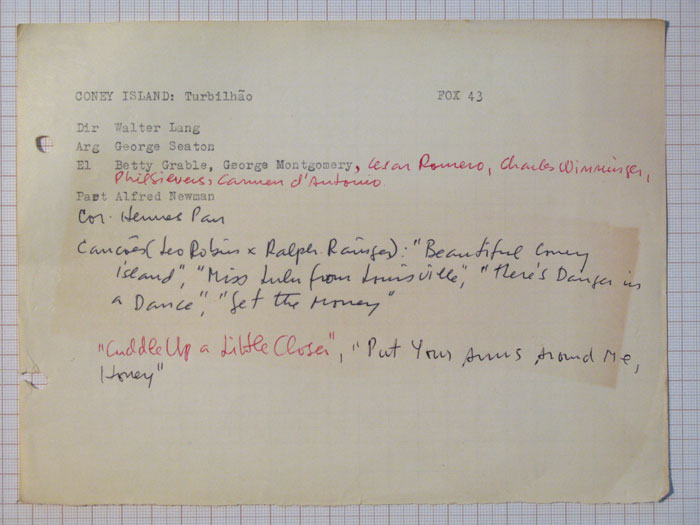 CONEY ISLAND: Turbilhão FOX 43
Dir Walter Lang
Arg George Seaton
El Betty Grable, George Montgomery, Cesar Romero, Charles Winninger,
Phil Sievers, Carmen d'Antonio
Part Alfred Newman
Cor. Hermes Pan
Canções (Leo Robin x Ralph Rainger): "Beautiful Coney
Island", "Miss Lulu from Louisville", "There's Danger in
a Dance", "Get the Money"
"Cuddle Up a Little Closer", "Put Your Arms Around Me,
Honey"